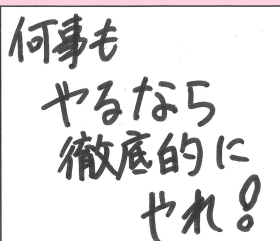 何事も
やるなら
徹底的に
やれ!